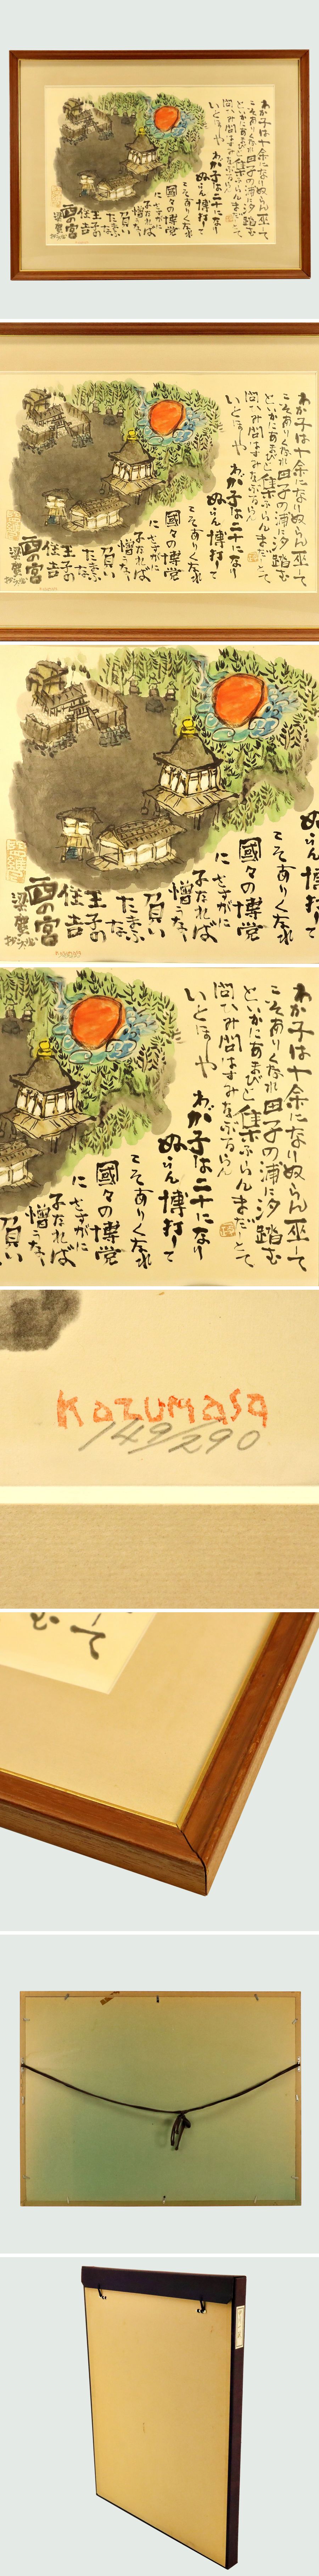 わが子は十余になりぬらん巫して
こそありくなれ田子の浦に汐踏む
といかにあまびと集ふらんまだしとて
問ひみ問はずみなぶるらん
いとほしや
わが子は二十になり
ぬらん博打して
こそありくなれ
國々の博党
にさすがに
子なれば
憎うなし
負い
たまふな
王子の
住吉
西の宮
Kazumasa
149/290